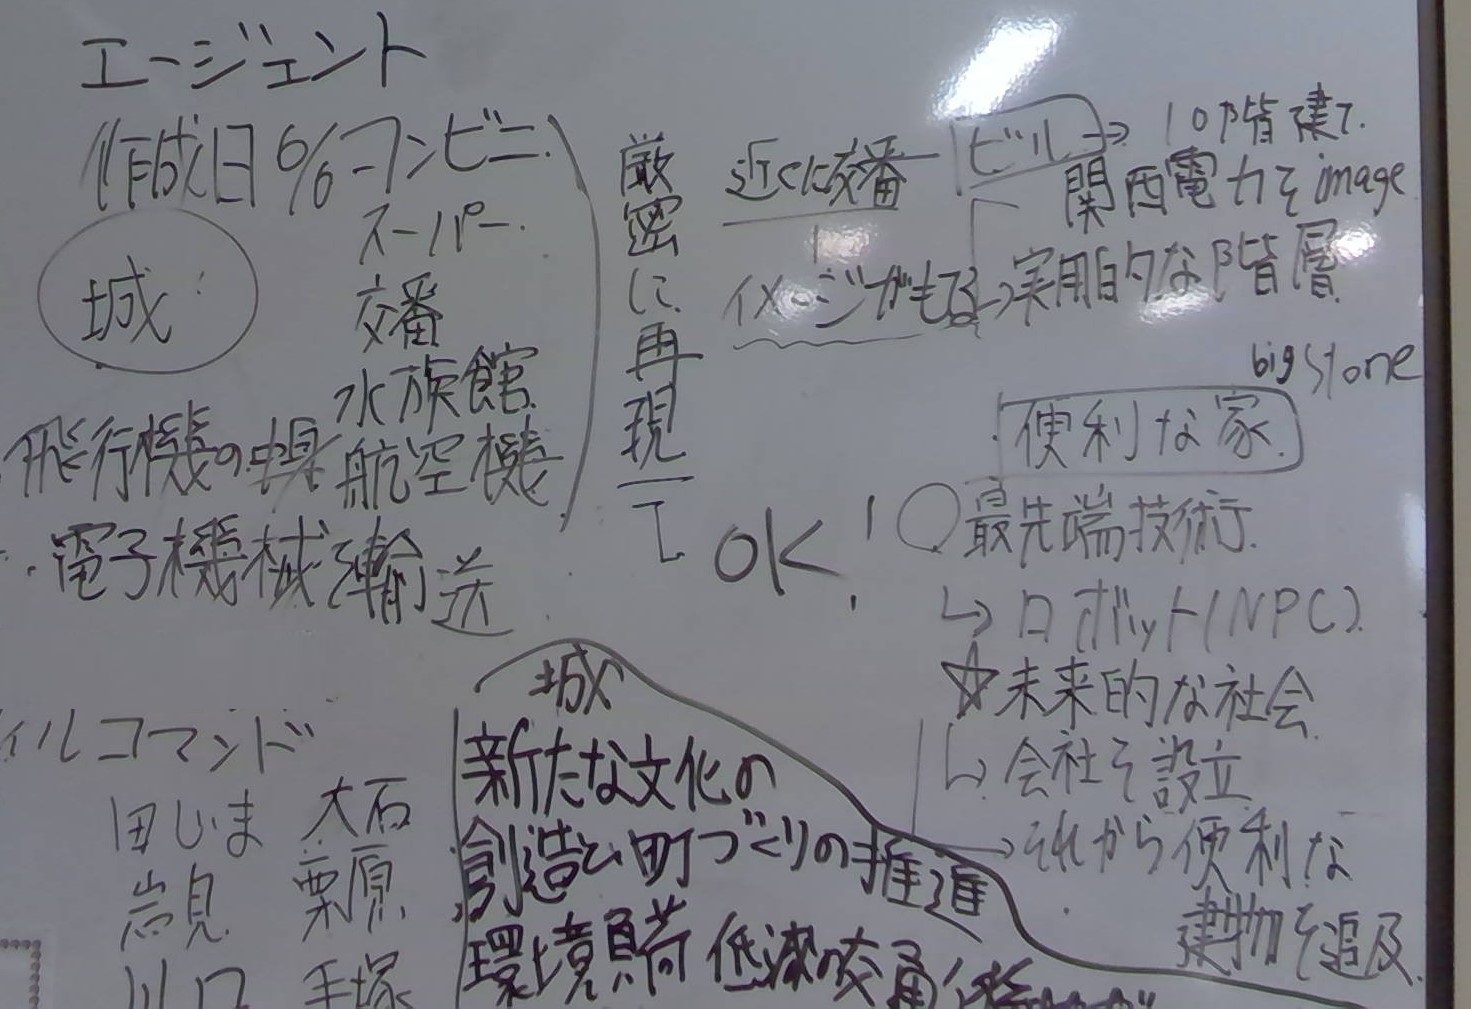 エージェント
作成日 6/6
城
コンビニ
スーパー
交番
水族館
航空機
飛行機の
電子機械を輸送
厳密に再現して
近くに交番
イメージがもてる
ビル→10階建て
関西電力をimage
→実用的な階層
big stone
便利な家
OK!!
○最先端技術
↳ロボット(NPC)
☆未来的な社会
↳会社を設立
→それから便利な
建物を追及
ィルコマンド
田じま 大石
岩見 栗原
川口 手塚
城
新たな文化の
創造と町づくりの推進
環境負荷 低減の交通